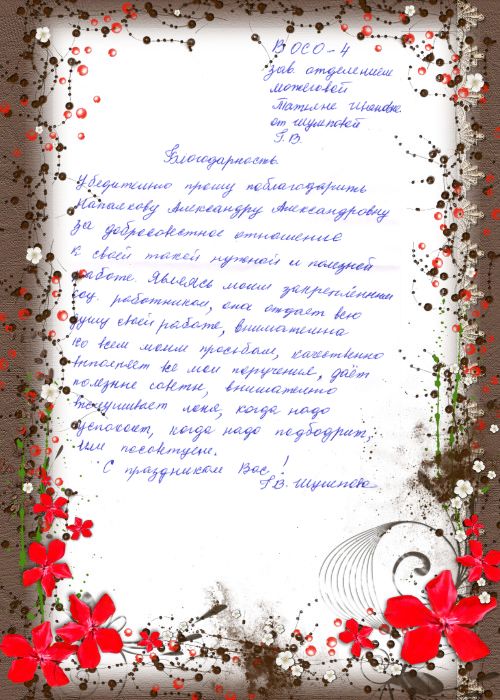 В ОСО-4
зав. отделением
Можеговой
Татьяне Ивановне
от Шумповой
Г.В.
Благодарность.
Убедительно прошу поблагодарить
Напалкову Александру Александровну
за добросовестное отношение
к своей такой нужной и полезной
работе. Являясь моим закреплённым
соц. работником, она отдаёт всю
душу своей работе, внимательна
ко всем моим просьбам, качественно
выполняет все мои поручения, даёт
полезные советы, внимательно
выслушивает меня, когда надо
успокоит, когда надо подбодрит,
или посоветует.
С праздником Вас!
Г.В.